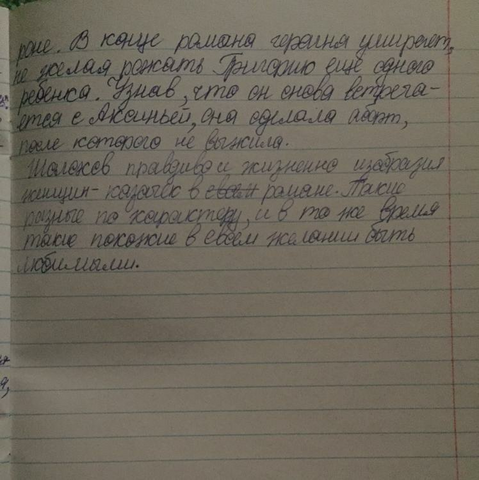 роне. В конце романа героиня умирает,
не желая рожать Григорию ещё одного
ребёнка. Узнав, что он снова встреча-
ется с Аксиньей, она сделала аборт,
после которого не выжила.
Шолохов правдиво и жизненно изобразил
женщин-казачек в своем романе. Такие
разные по характеру, и в то же время
такие похожие в своем желании быть
любимыми.